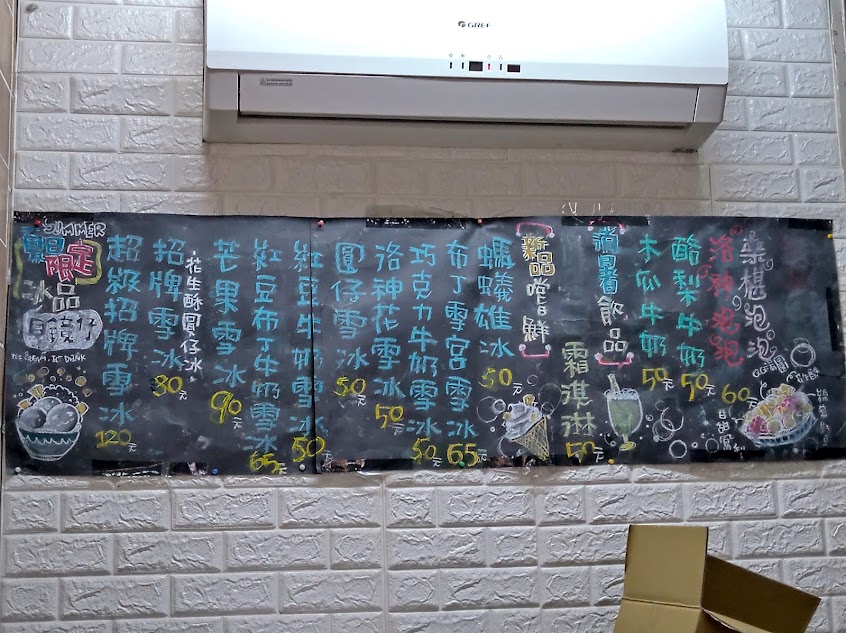 GREE
SUMMER
夏日
限定
冰品
ICE CREAM · ICE DRINK
超級招牌雪冰
120元
招牌雪冰
80元
花生酥圓仔冰
芒果雪冰
90元
紅豆布丁牛奶雪冰
65元
紅豆牛奶雪冰
50元
圓仔雪冰
50元
洛神花雪冰
50元
巧克力牛奶雪冰
50元
布丁雪宮雪冰
65元
螞蟻雄冰
50元
新品嚐鮮
霜淇淋
50元
消暑飲品
木瓜牛奶
50元
酪梨牛奶
50元
洛神泡泡
桑椹泡泡
60元